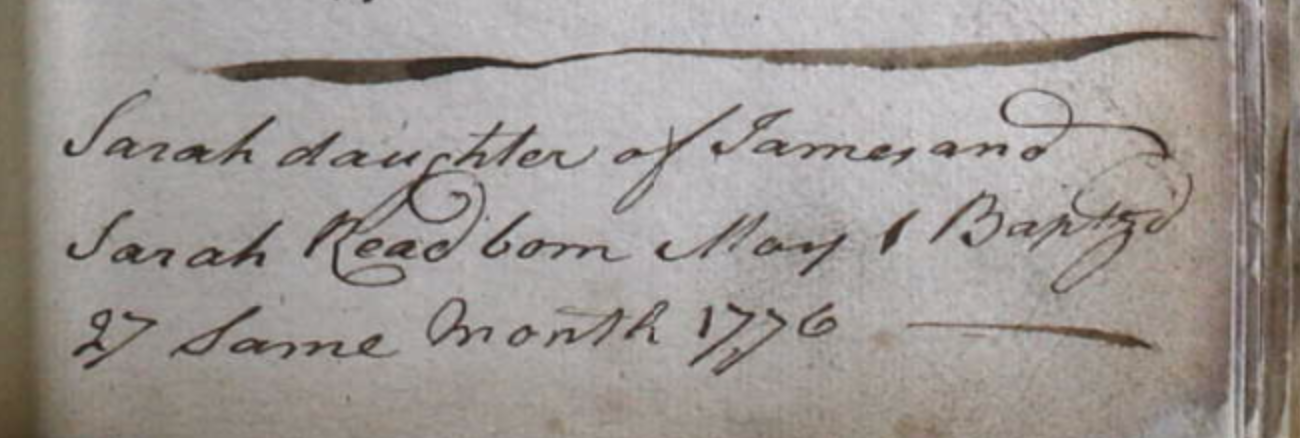 Sarah daughter of James and
Sarah Read born May 1 Baptzd
27 Same Month 1776